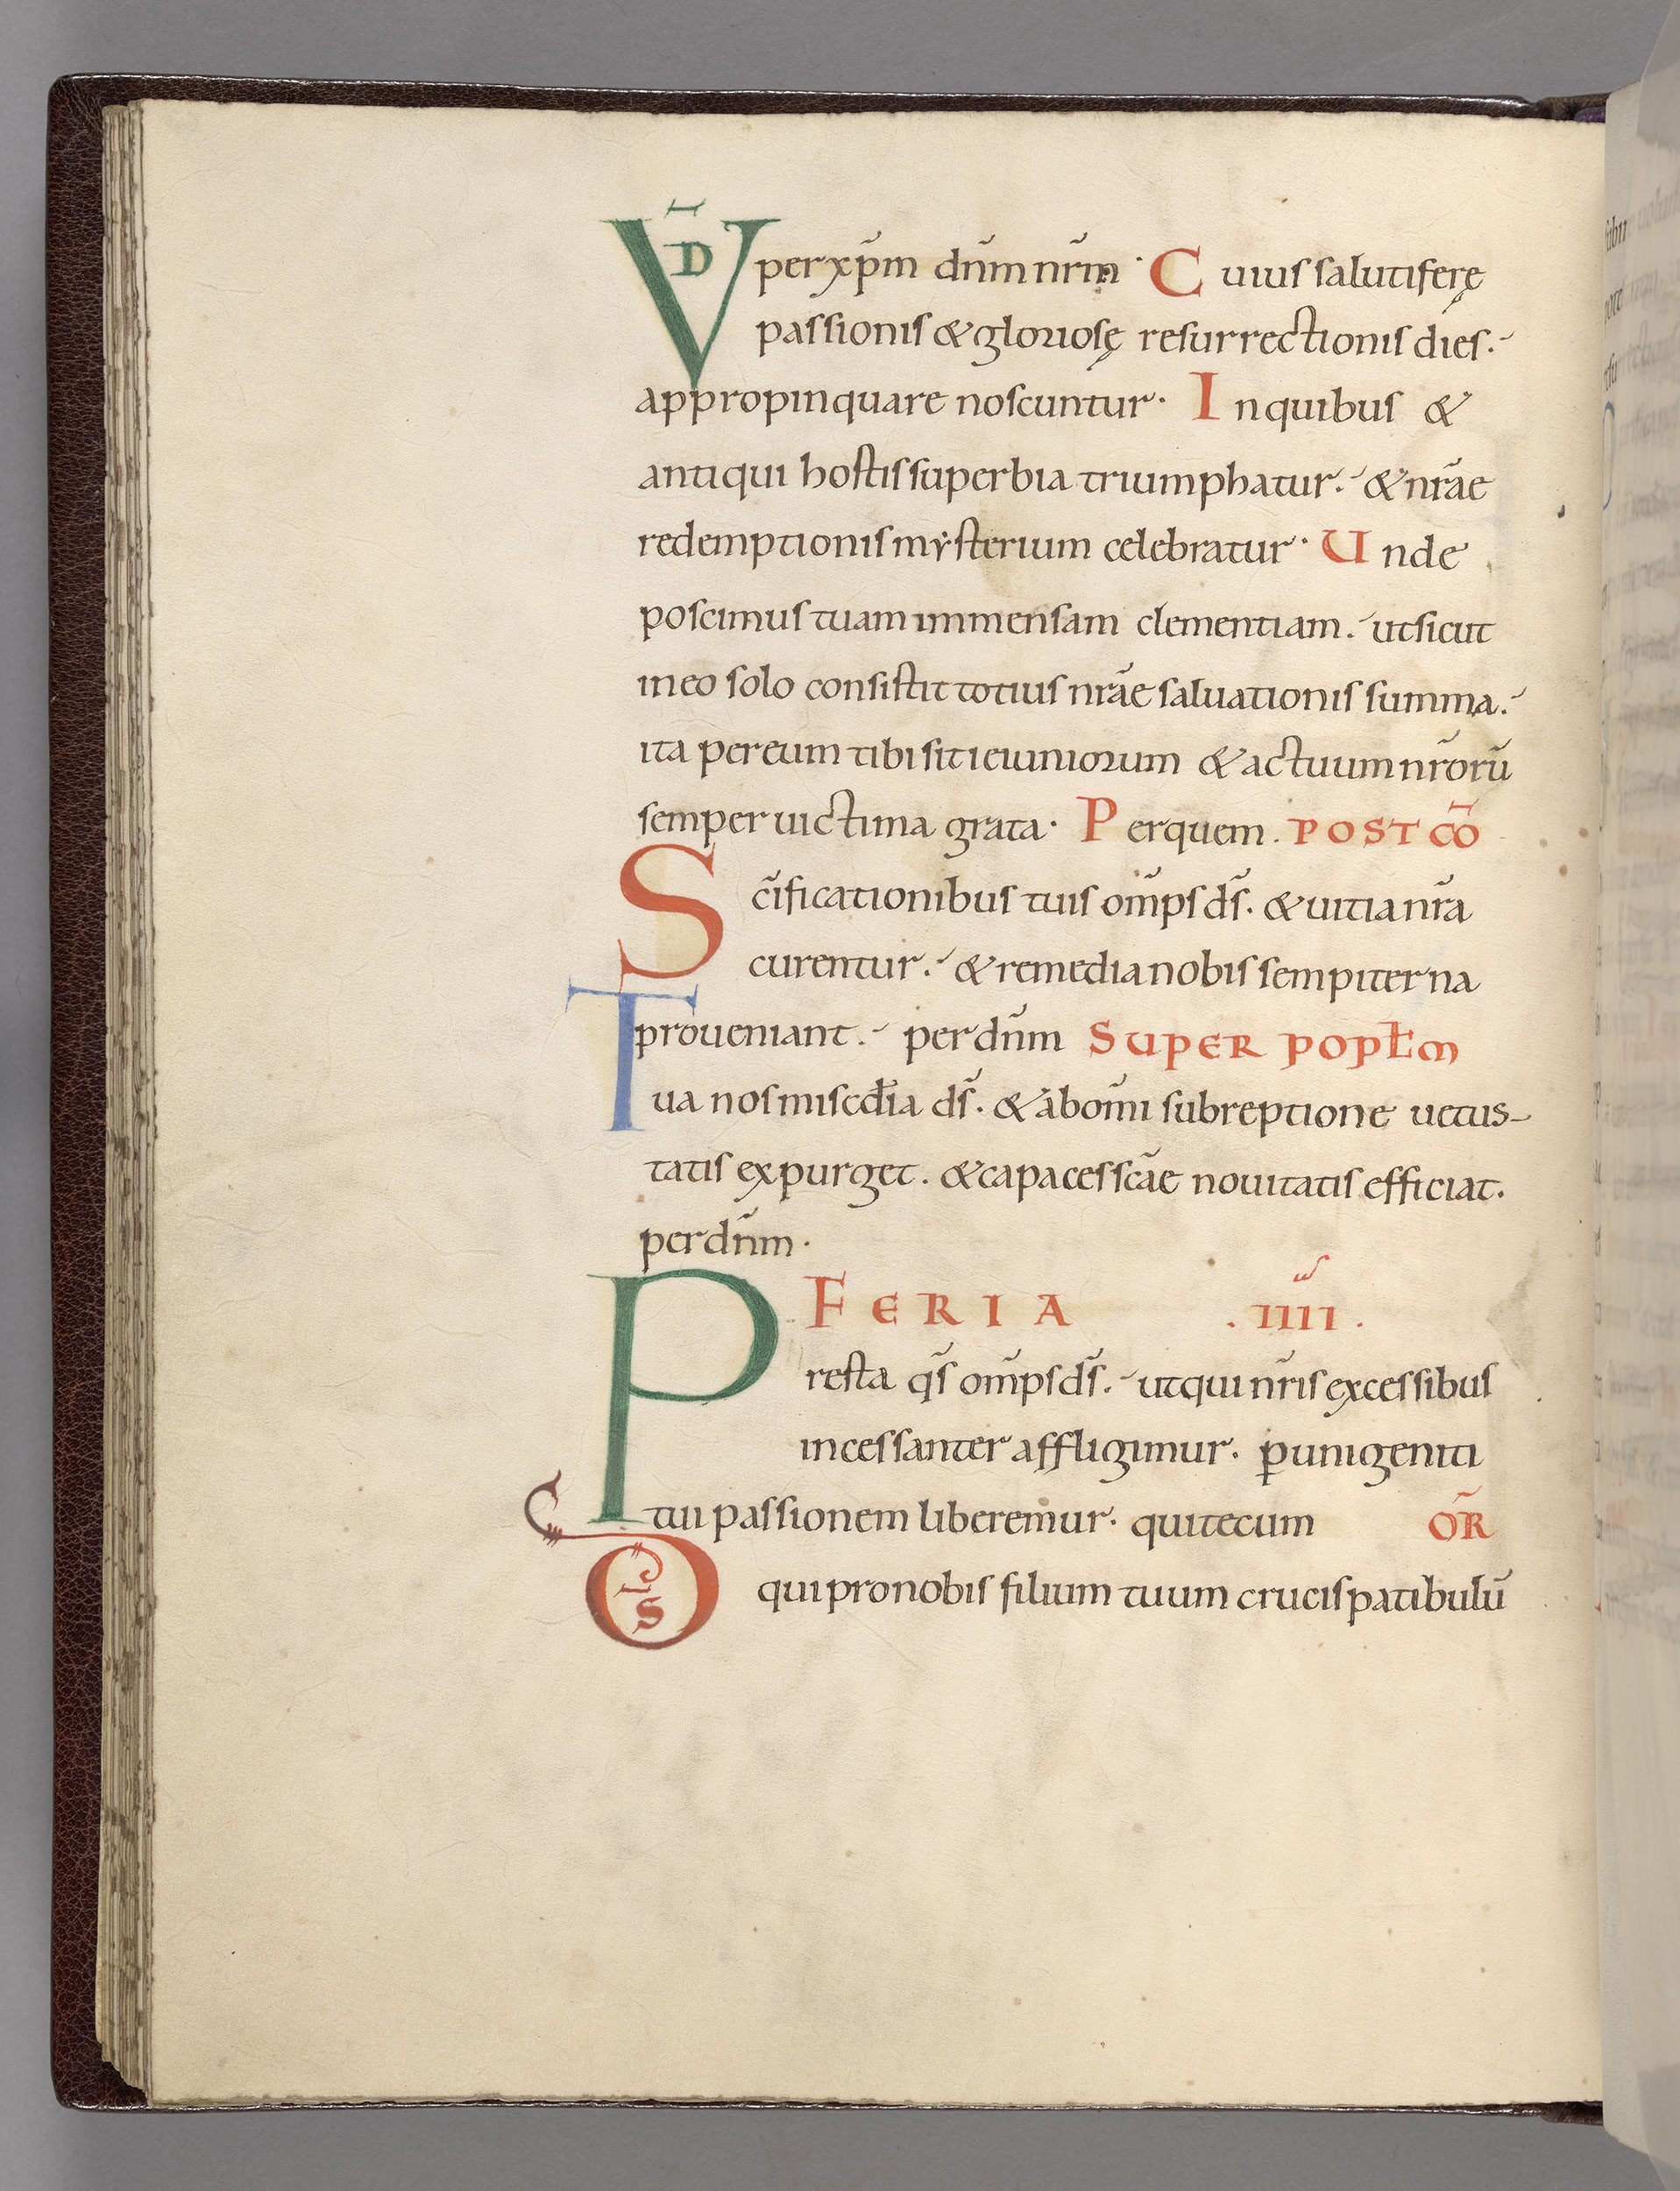 VD̄ per xp̄m dn̄m nr̄m · Cuius salutiferę
passionis & gloriosę resurrectionis dies.
appropinquare noscuntur · In quibus &
antiqui hostis superbia triumphatur. & nrāe
redemptionis mẏsterium celebratur · Unde
poscimus tuam immensam clementiam. ut sicut
in eo solo consistit totius nrāe saluationis summa.
ita per eum tibi sit ieiuniorum & actuum nr̄orū
semper uictima grata · Per quem. POST CŌ
Scīficationibus tuis om̄ps ds̄. & uitia nr̄a
curentur. & remedia nobis sempiterna
proueniant. per dn̄m SUPER POPŁM
Tua nos misc̄dia ds̄. & ab om̄i subreptione uetus-
tatis expurget. & capaces scāe nouitatis efficiat.
per dn̄m ·
FERIA .IIII.
Presta qs̄ om̄ps ds̄. ut qui nr̄is excessibus
incessanter affligimur. ꝑ unigeniti
tui passionem liberemur. qui tecum OR̄
DS̄ qui pro nobis filium tuum crucis patibulū